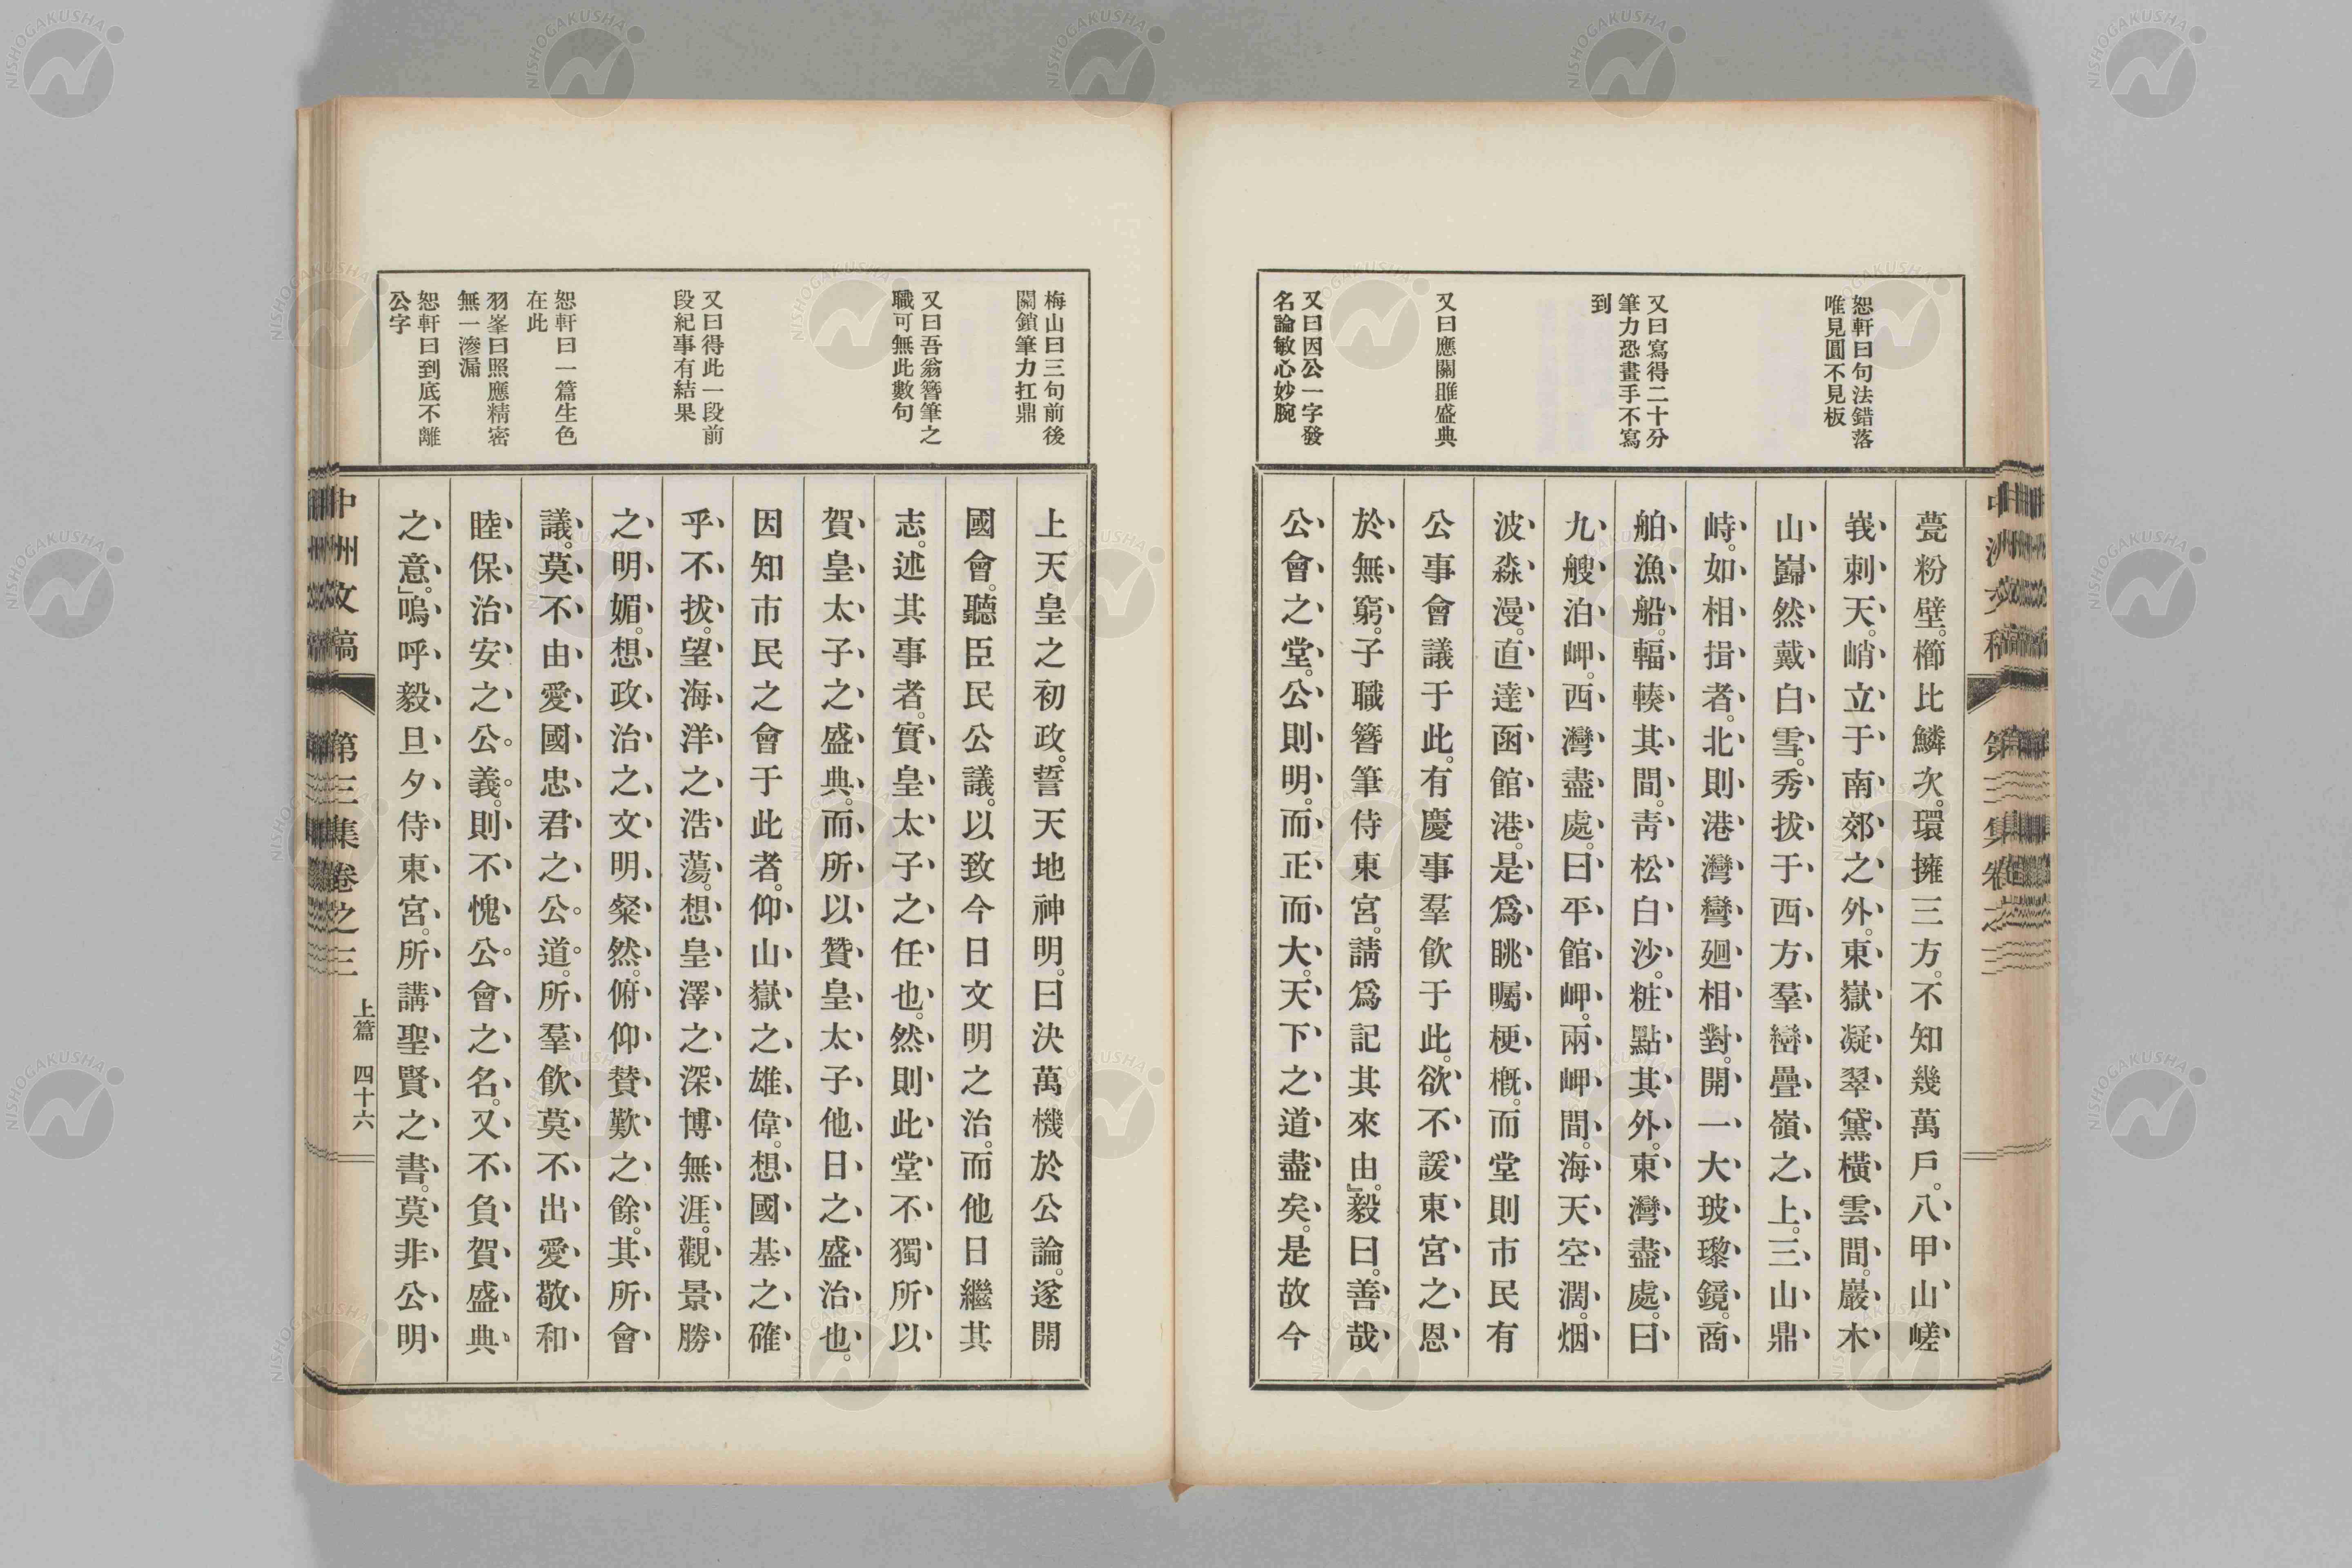 恕軒曰句法錯落
唯見圓不見板
又曰寫得二十分
筆力恐畫手不寫
到
又曰應關雎盛典
又曰因公一字發
名論敏心妙腕
甍粉壁。櫛比鱗次。環擁三方。不知幾萬戶。八甲山嵯
峩刺天。峭立于南郊之外。東嶽凝翠黛橫雲間。巖木
山巋然戴白雪。秀拔于西方羣巒疊嶺之上。三山鼎
峙。如相揖者。北則港灣彎廻相對。開一大玻瓈鏡。商
舶漁船。輻輳其間。靑松白沙。粧點其外。東灣盡處。曰
九艘泊岬。西灣盡處。曰平館岬。兩岬間。海天空濶。烟
波淼漫。直達函館港。是爲眺矚梗槪。而堂則市民有
公事會議于此。有慶事羣飮于此。欲不諼東宮之恩
於無窮。子職簪筆侍東宮。請爲記其來由。』毅曰。善哉
公會之堂。公則明。而正而大。天下之道盡矣。是故今
梅山曰三句前後
關鎖筆力扛鼎
又曰吾翁簪筆之
職可無此數句
又曰得此一段前
段紀事有結果
恕軒曰一篇生色
在此
羽峯曰照應精密
無一滲漏
恕軒曰到底不離
公字
上天皇之初政。誓天地神明。曰決萬機於公論。遂開
國會。聽臣民公議。以致今日文明之治。而他日繼其
志。述其事者。實皇太子之任也。然則此堂不獨所以
賀皇太子之盛典。而所以贊皇太子他日之盛治也。
因知市民之會于此者。仰山嶽之雄偉。想國基之確
乎不拔。望海洋之浩蕩。想皇澤之深博無涯。觀景勝
之明媚。想政治之文明粲然。俯仰賛歎之餘。其所會
議。莫不由愛國忠君之公道。所羣飮莫不出愛敬和
睦保治安之公義。則不愧公會之名。又不負賀盛典
之意。』嗚呼毅旦夕侍東宮。所講聖賢之書。莫非公明
中州文稿 第三集卷之三 上篇 四十六